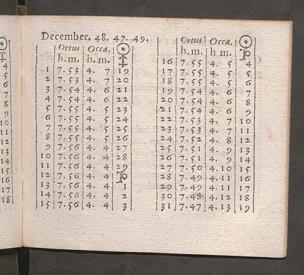 December. 48. 47. 49.
Ortus Occa. ☉
h. m. h. m. ♐
1 7. 53 4. 7 19
2 7. 53 4. 7 20
3 7. 54 4. 6 21
4 7. 54 4. 6 22
5 7. 55 4. 5 23
6 7. 55 4. 5 24
7 7. 55 4. 5 25
8 7. 56 4. 4 26
9 7. 56 4. 4 27
10 7. 56 4. 4 28
11 7. 56 4. 4 29
12 7. 56 4. 4 ♑
13 7. 56 4. 4 1
14 7. 56 4. 4 2
15 7. 56 4. 4 3
Ortus Occa. ☉
h. m. h. m. ♑
16 7. 55 4. 5 4
17 7. 55 4. 5 5
18 7. 55 4. 5 6
19 7. 55 4. 5 7
20 7. 54 4. 6 8
21 7. 54 4. 6 9
22 7. 54 4. 6
23 7. 53 4. 7
24 7. 52 4. 8
25 7. 52 4. 8
26 7. 51 4. 9
27 7. 51 4. 9
28 7. 50 4. 10
29 7. 49 4. 11
30 7. 48 4. 12
31 7. 47 4. 13 19
☉
4
5
6
7
8
9
10
11
12
13
14
15
16
17
18